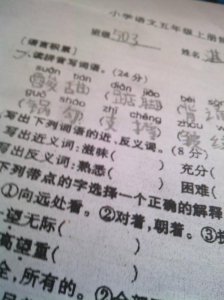 小学语文五年级上册
班级503 姓名
[语言积累]
一、读拼音写词语。(24分)
suān tián diǎn jiǎo
酸甜 踮脚
guō shāo zhī chēng
锅 支撑
写出下列词语的近、反义词。(8分)
写出近义词:滋味( ) 充分(
写出反义词:熟悉( ) 困难(
下列带点的字选择一个正确的解释
①向远处看。②对着,朝着。③
望无际( )
高望重( )
全,所有的。②